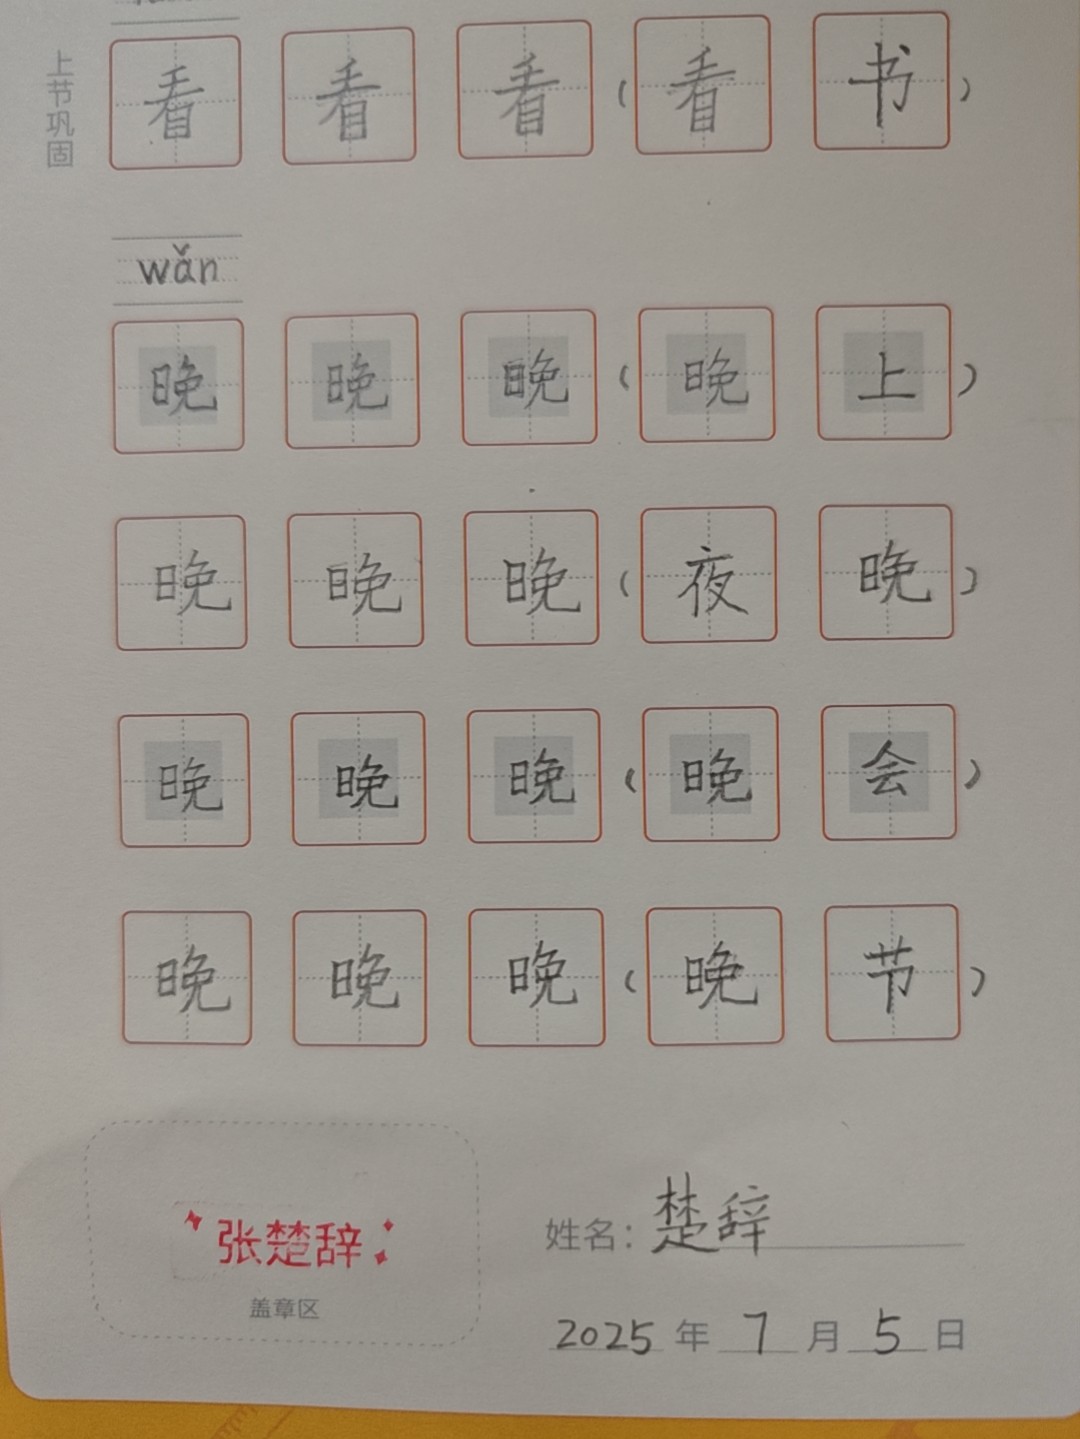 上节巩固
看 看 看 ( 看 书 )
wǎn
晚 晚 晚 ( 晚 上 )
晚 晚 晚 ( 夜 晚 )
晚 晚 晚 ( 晚 会 )
晚 晚 晚 ( 晚 节 )
张楚辞
盖章区
姓名: 楚辞
2025 年 7 月 5 日